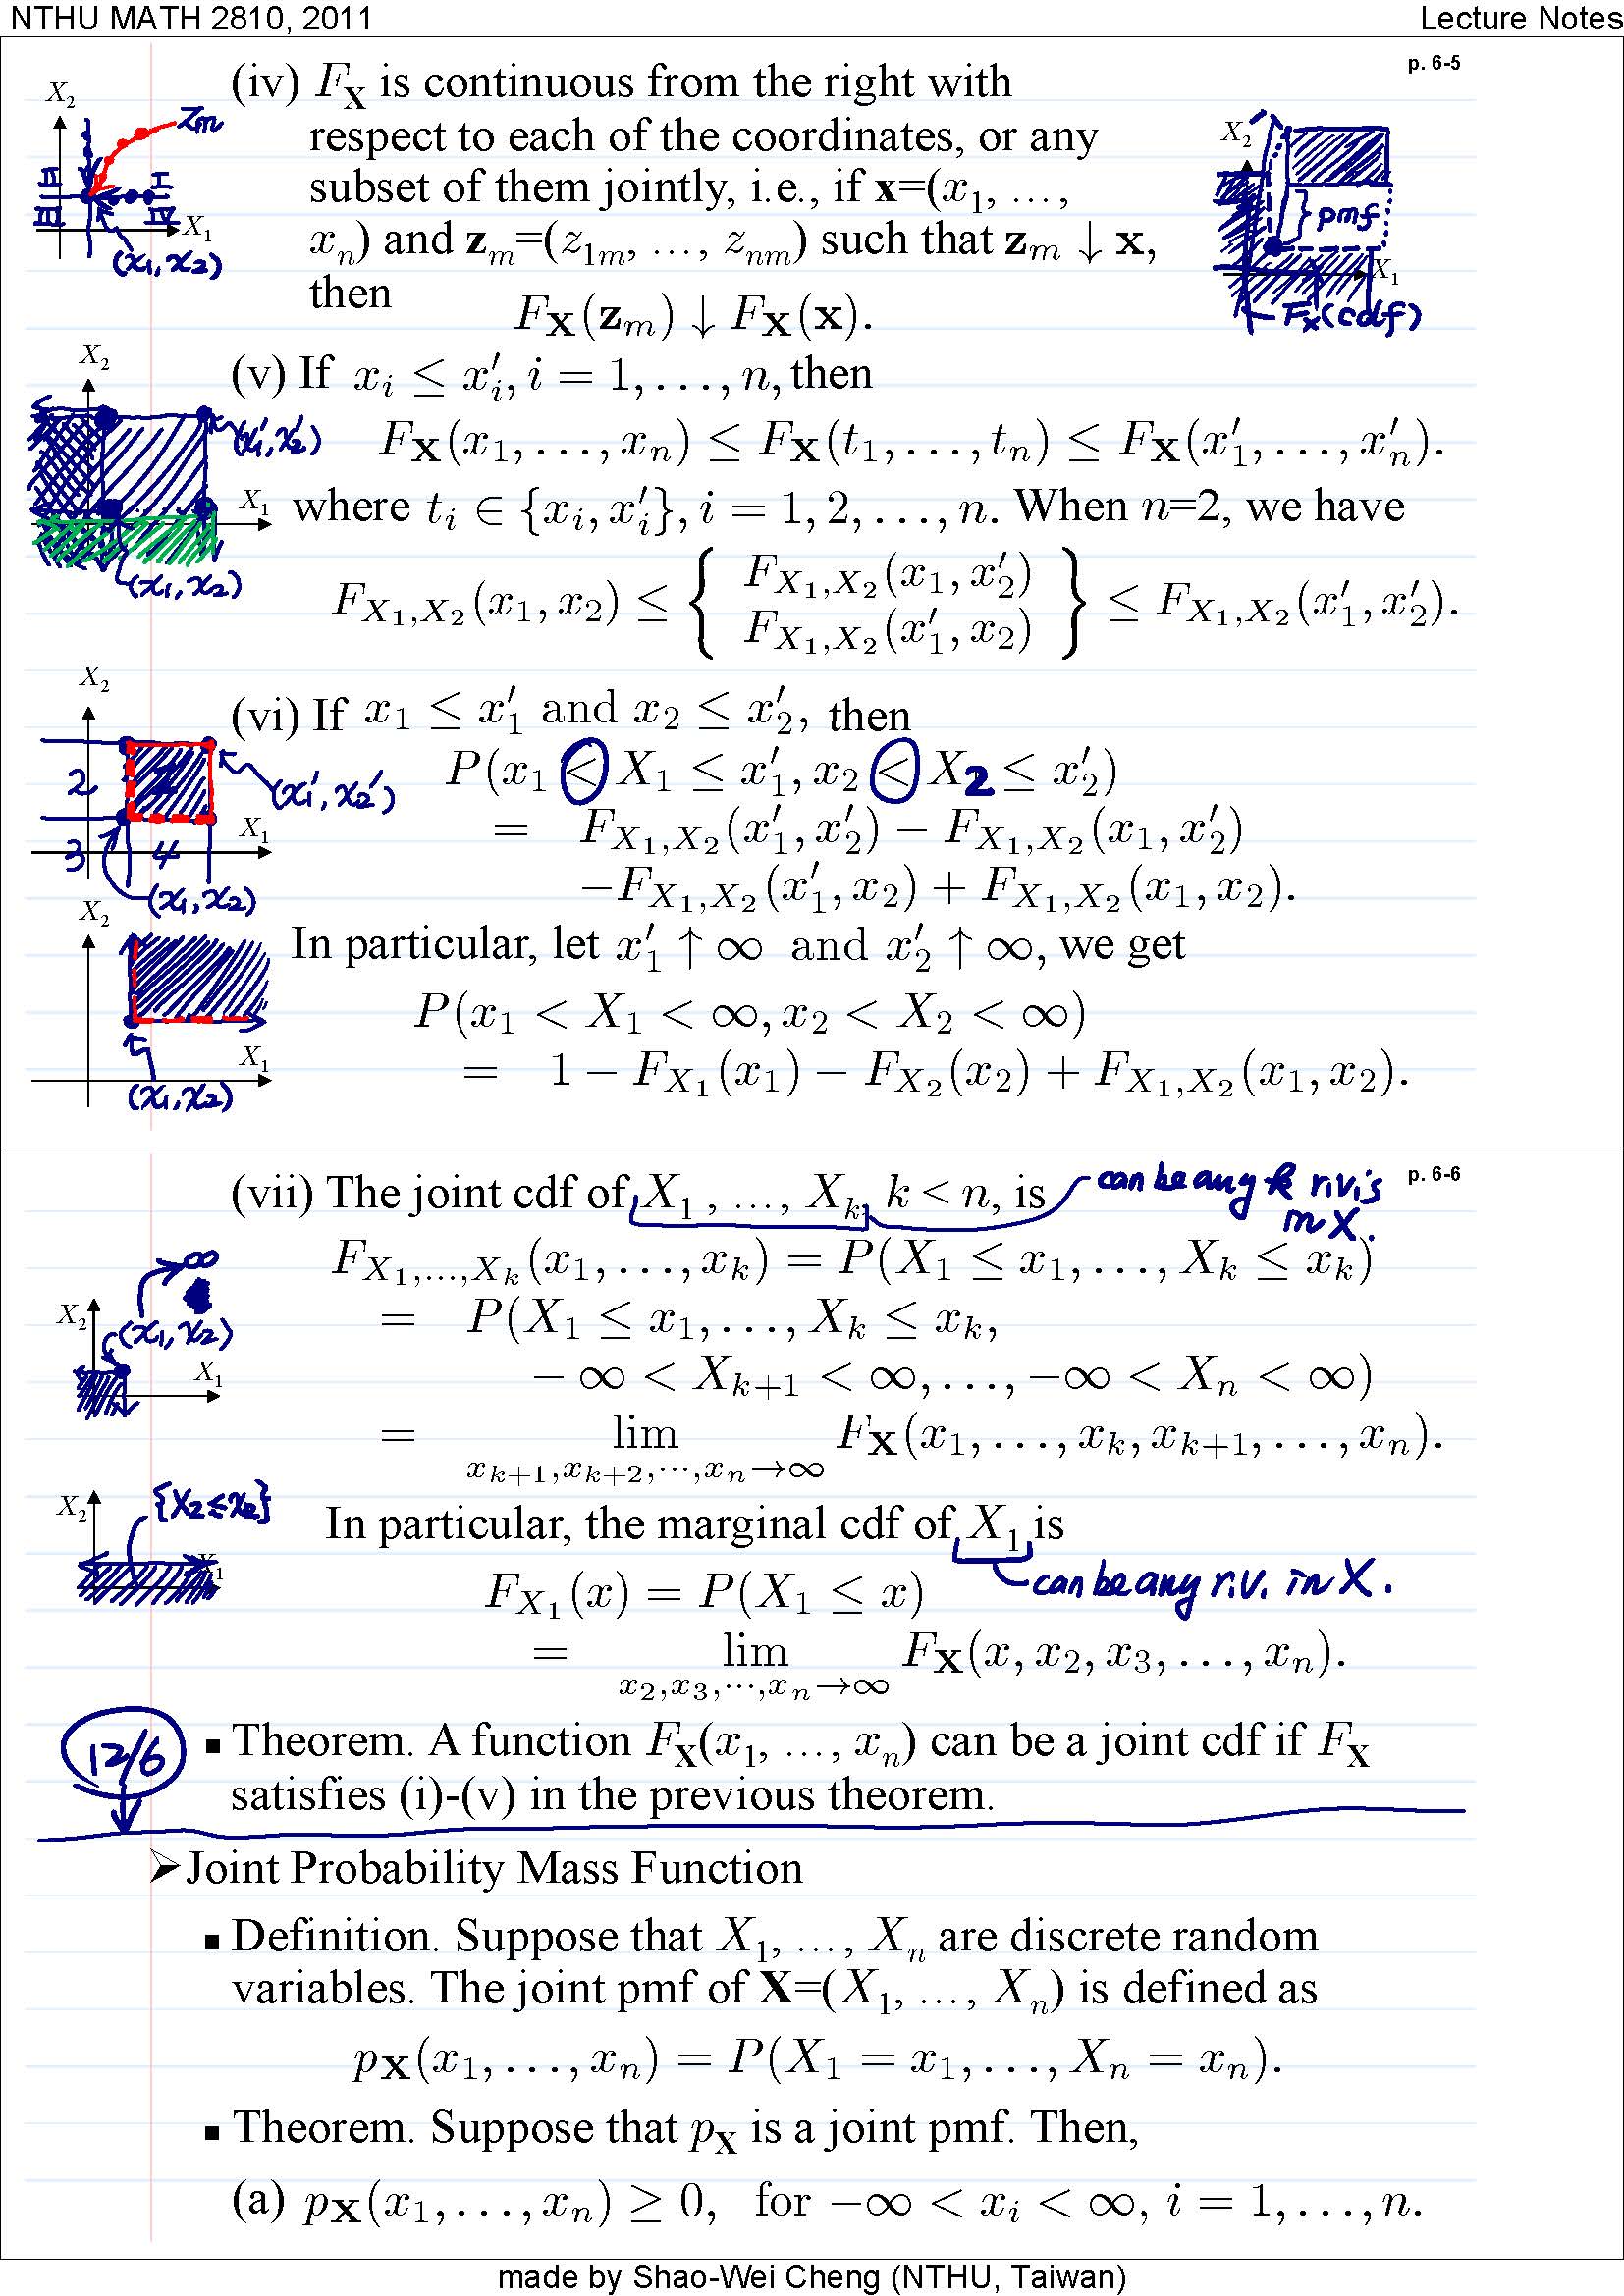 NTHU MATH 2810, 2011 Lecture Notes
p. 6-5
(iv) F_X is continuous from the right with
respect to each of the coordinates, or any
subset of them jointly, i.e., if x=(x₁, …,
xₙ) and zₘ=(z₁ₘ, …, zₙₘ) such that zₘ ↓ x,
then
F_X(zₘ) ↓ F_X(x).
X₂
zₘ
II I
III IV
X₁
(x₁, x₂)
X₂
} pmf
X₁
F_X(cdf)
(v) If xᵢ ≤ x′ᵢ, i = 1, …, n, then
F_X(x₁, …, xₙ) ≤ F_X(t₁, …, tₙ) ≤ F_X(x′₁, …, x′ₙ).
where tᵢ ∈ {xᵢ, x′ᵢ}, i = 1, 2, …, n. When n=2, we have
F_{X₁,X₂}(x₁, x₂) ≤ { F_{X₁,X₂}(x₁, x′₂)
F_{X₁,X₂}(x′₁, x₂) } ≤ F_{X₁,X₂}(x′₁, x′₂).
X₂
(x₁′, x₂′)
X₁
(x₁, x₂)
(vi) If x₁ ≤ x′₁ and x₂ ≤ x′₂, then
P(x₁ < X₁ ≤ x′₁, x₂ < X₂ ≤ x′₂)
= F_{X₁,X₂}(x′₁, x′₂) − F_{X₁,X₂}(x₁, x′₂)
−F_{X₁,X₂}(x′₁, x₂) + F_{X₁,X₂}(x₁, x₂).
X₂
2
(x₁′, x₂′)
X₁
3 4
(x₁, x₂)
In particular, let x′₁ ↑ ∞ and x′₂ ↑ ∞, we get
P(x₁ < X₁ < ∞, x₂ < X₂ < ∞)
= 1 − F_{X₁}(x₁) − F_{X₂}(x₂) + F_{X₁,X₂}(x₁, x₂).
X₂
X₁
(x₁, x₂)
p. 6-6
(vii) The joint cdf of X₁, …, Xₖ, k < n, is
can be any k r.v.'s
in X.
F_{X₁,…,Xₖ}(x₁, …, xₖ) = P(X₁ ≤ x₁, …, Xₖ ≤ xₖ)
= P(X₁ ≤ x₁, …, Xₖ ≤ xₖ,
− ∞ < Xₖ₊₁ < ∞, …, −∞ < Xₙ < ∞)
= lim F_X(x₁, …, xₖ, xₖ₊₁, …, xₙ).
xₖ₊₁,xₖ₊₂,⋯,xₙ→∞
∞
X₂
(x₁, x₂)
X₁
In particular, the marginal cdf of X₁ is
can be any r.v. in X.
F_{X₁}(x) = P(X₁ ≤ x)
= lim F_X(x, x₂, x₃, …, xₙ).
x₂,x₃,⋯,xₙ→∞
X₂
{X₂ ≤ x₂}
12/6
▪ Theorem. A function F_X(x₁, …, xₙ) can be a joint cdf if F_X
satisfies (i)-(v) in the previous theorem.
➢Joint Probability Mass Function
▪ Definition. Suppose that X₁, …, Xₙ are discrete random
variables. The joint pmf of X=(X₁, …, Xₙ) is defined as
p_X(x₁, …, xₙ) = P(X₁ = x₁, …, Xₙ = xₙ).
▪ Theorem. Suppose that p_X is a joint pmf. Then,
(a) p_X(x₁, …, xₙ) ≥ 0, for −∞ < xᵢ < ∞, i = 1, …, n.
made by Shao-Wei Cheng (NTHU, Taiwan)